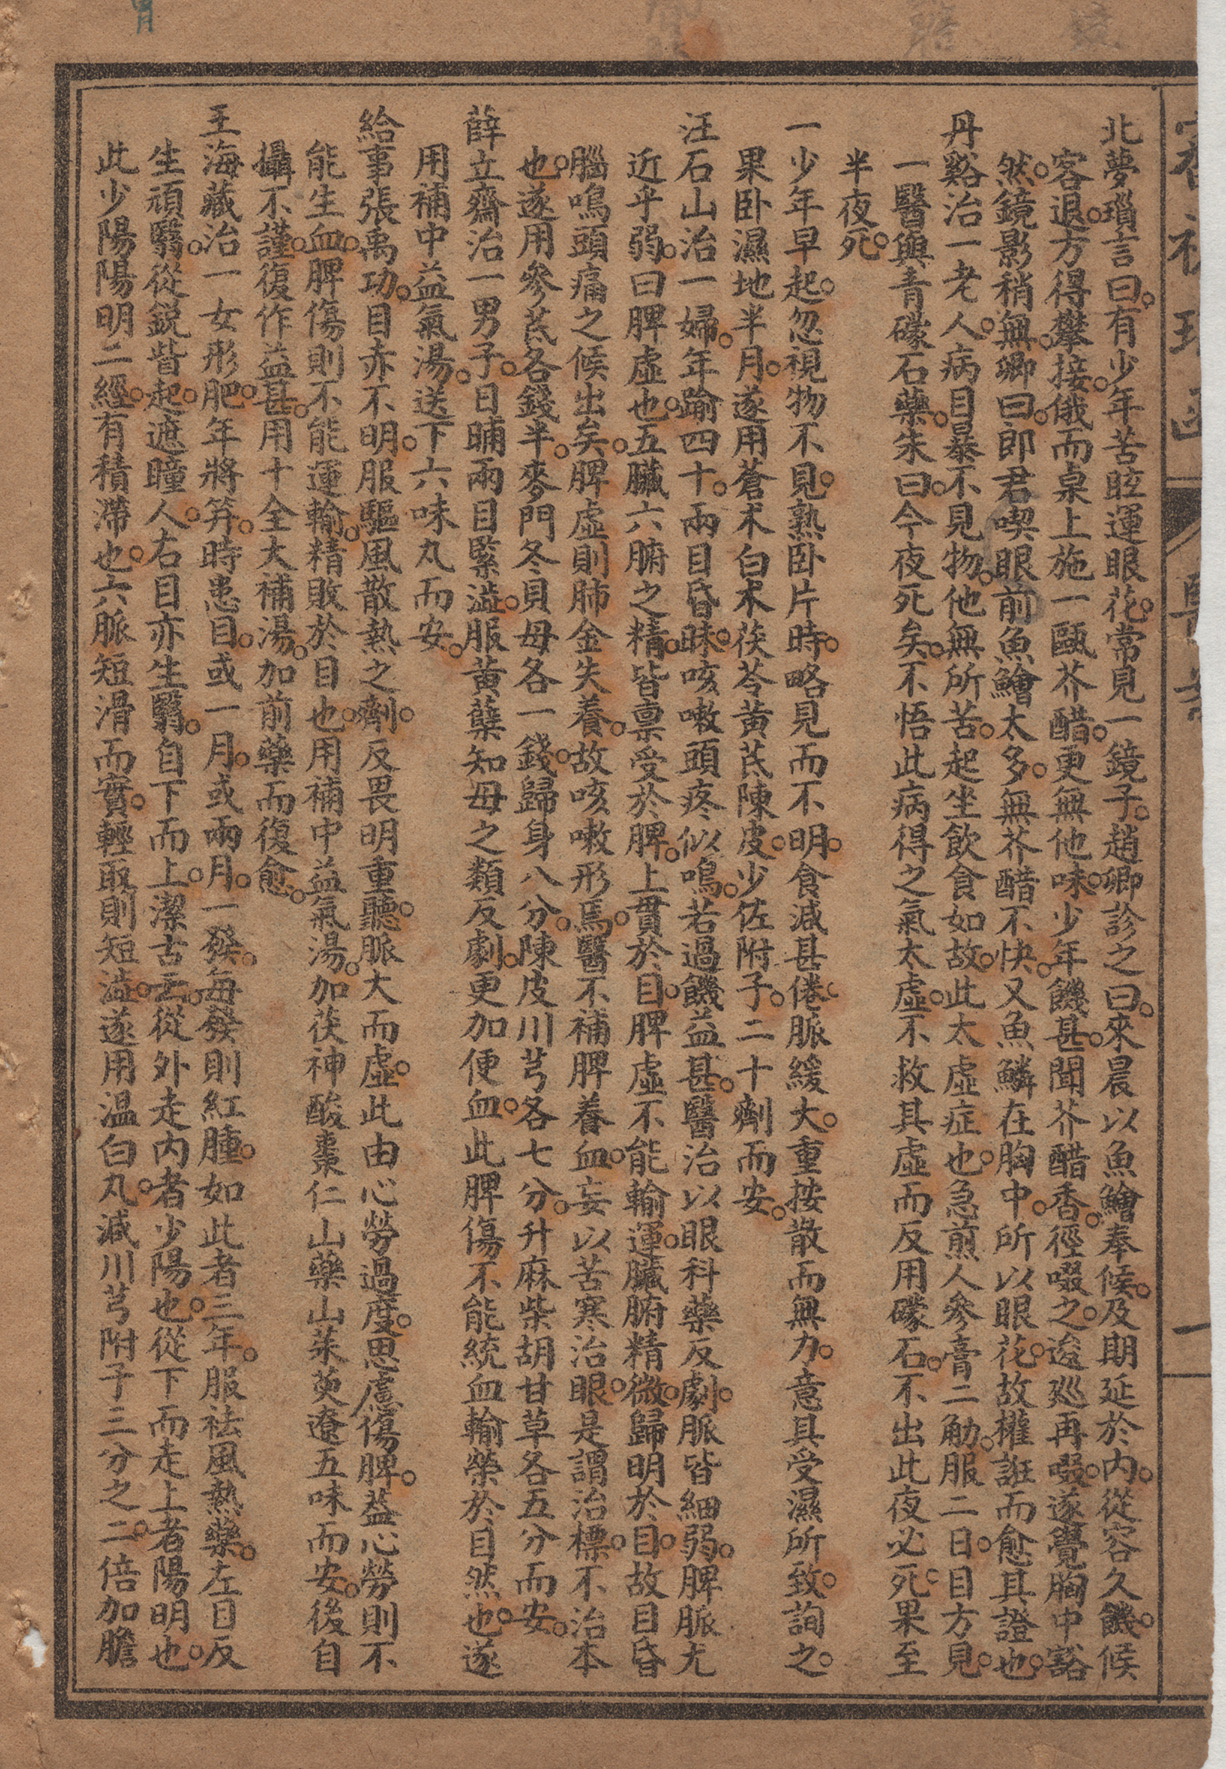 北夢瑣言曰。有少年苦眩運眼花。常見一鏡子。趙卿診之曰。來晨以魚鱠奉候。及期延於內。從容久饑。候
客退。方得攀接。俄而桌上施一甌芥醋。更無他味。少年饑甚。聞芥醋香。徑啜之。逡廵再啜。遂覺胸中豁
然。鏡影稍無。卿曰。郎君喫眼前魚鱠太多。無芥醋不快。又魚鱗在胸中。所以眼花。故權誑而愈其證也。
丹谿治一老人。病目暴不見物。他無所苦。起坐飲食如故。此太虛症也。急煎人參膏二觔。服二日。目方見。
一醫與青礞石藥。朱曰。今夜死矣。不悟此病得之氣太虛。不救其虛而反用礞石。不出此夜必死。果至
半夜死。
一少年早起。忽視物不見。熟卧片時。略見而不明。食減甚倦。脈緩大。重按散而無力。意其受濕所致。詢之。
果卧濕地半月。遂用蒼朮白朮茯苓黃芪陳皮。少佐附子。二十劑而安。
汪石山治一婦。年踰四十。兩目昏昧。咳嗽頭疼似鳴。若過饑益甚。醫治以眼科藥反劇。脈皆細弱。脾脈尤
近乎弱。曰脾虛也。五臟六腑之精。皆禀受於脾。上貫於目。脾虛不能輸運臟腑精微歸明於目。故目昏
腦鳴頭痛之候出矣。脾虛則肺金失養。故咳嗽形焉。醫不補脾養血。妄以苦寒治眼。是謂治標不治本
也。遂用參芪各錢半。麥門冬貝母各一錢。歸身八分。陳皮川芎各七分。升麻柴胡甘草各五分而安。
薛立齋治一男子。日晡兩目緊澁。服黃蘗知母之類反劇。更加便血。此脾傷不能統血輸榮於目然也。遂
用補中益氣湯。送下六味丸而安。
給事張禹功。目赤不明。服驅風散熱之劑。反畏明重聽。脈大而虛。此由心勞過度。思慮傷脾。葢心勞則不
能生血。脾傷則不能運輸。精敗於目也。用補中益氣湯。加茯神酸棗仁山藥山茱萸遼五味而安。後自
攝不謹。復作益甚。用十全大補湯。加前藥而復愈。
王海藏治一女形肥。年將筓。時患目。或一月。或兩月。一發。每發則紅腫。如此者三年。服祛風熱藥。左目反
生頑翳。從銳眥起。遮瞳人。右目亦生翳。自下而上。潔古云。從外走內者少陽也。從下而走上者陽明也。
此少陽陽明二經。有積滯也。六脈短滑而實。輕取則短澁。遂用溫白丸。減川芎附子三分之二。倍加膽